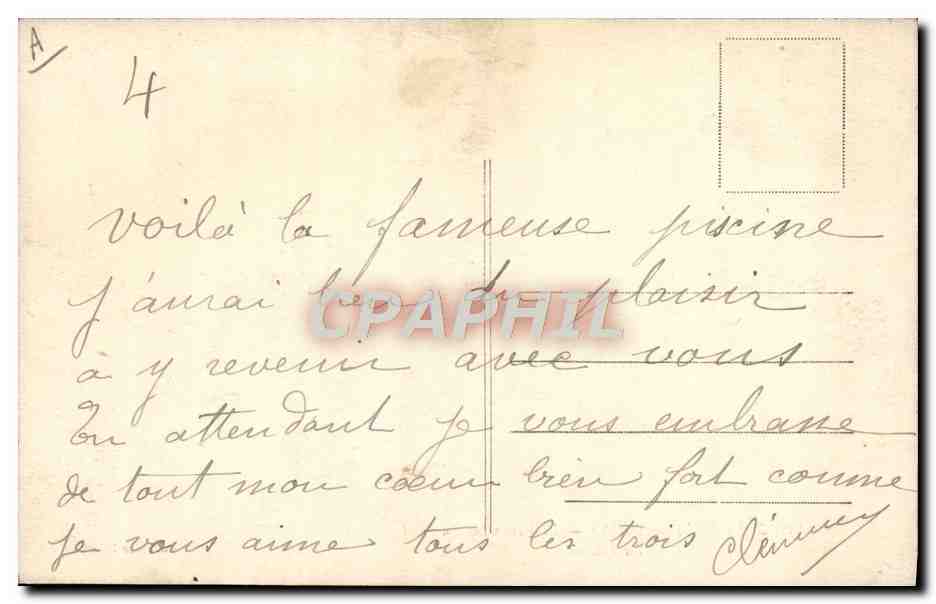 A
4
voilà la fameuse piscine
j'aurai bien du plaisir
CPAPHIL
a y revenir avec vous
En attendant je vous embrasse
de tout mon coeur bien fort comme
je vous aime tous les trois